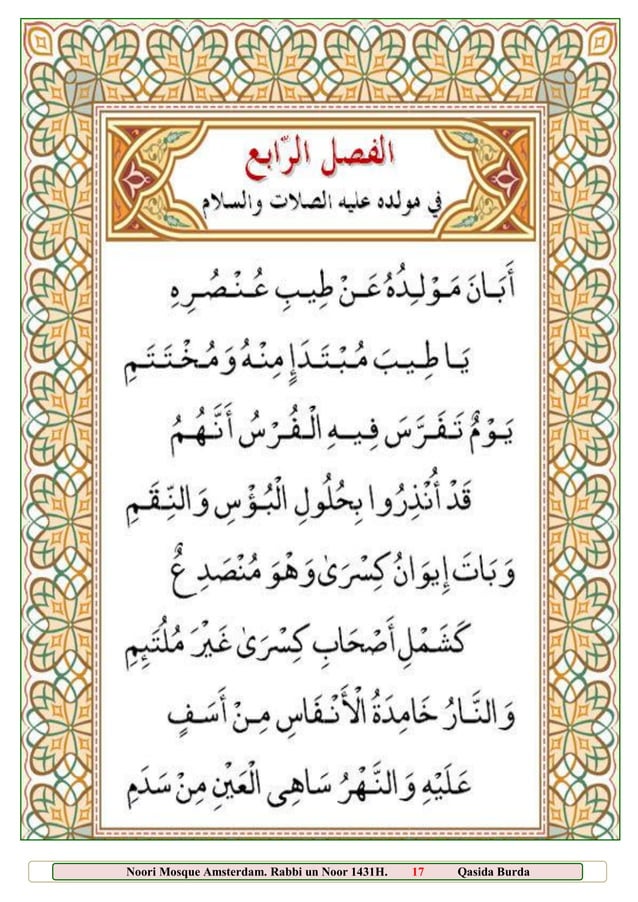 الفصل الرّابع
في مولده عليه الصلات والسلام
أَبَانَ مَوْلِدُهُ عَنْ طِيبِ عُنْصُرِهِ
يَا طِيبَ مُبْتَدَإٍ مِنْهُ وَمُخْتَتَمِ
يَوْمٌ تَفَرَّسَ فِيهِ الْفُرْسُ أَنَّهُمُ
قَدْ أُنْذِرُوا بِحُلُولِ الْبُؤْسِ وَالنِّقَمِ
وَبَاتَ إِيوَانُ كِسْرَىٰ وَهْوَ مُنْصَدِعٌ
كَشَمْلِ أَصْحَابِ كِسْرَىٰ غَيْرَ مُلْتَئِمِ
وَالنَّارُ خَامِدَةُ الْأَنْفَاسِ مِنْ أَسَفٍ
عَلَيْهِ وَالنَّهْرُ سَاهِى الْعَيْنِ مِنْ سَدَمِ
Noori Mosque Amsterdam. Rabbi un Noor 1431H. 17 Qasida Burda